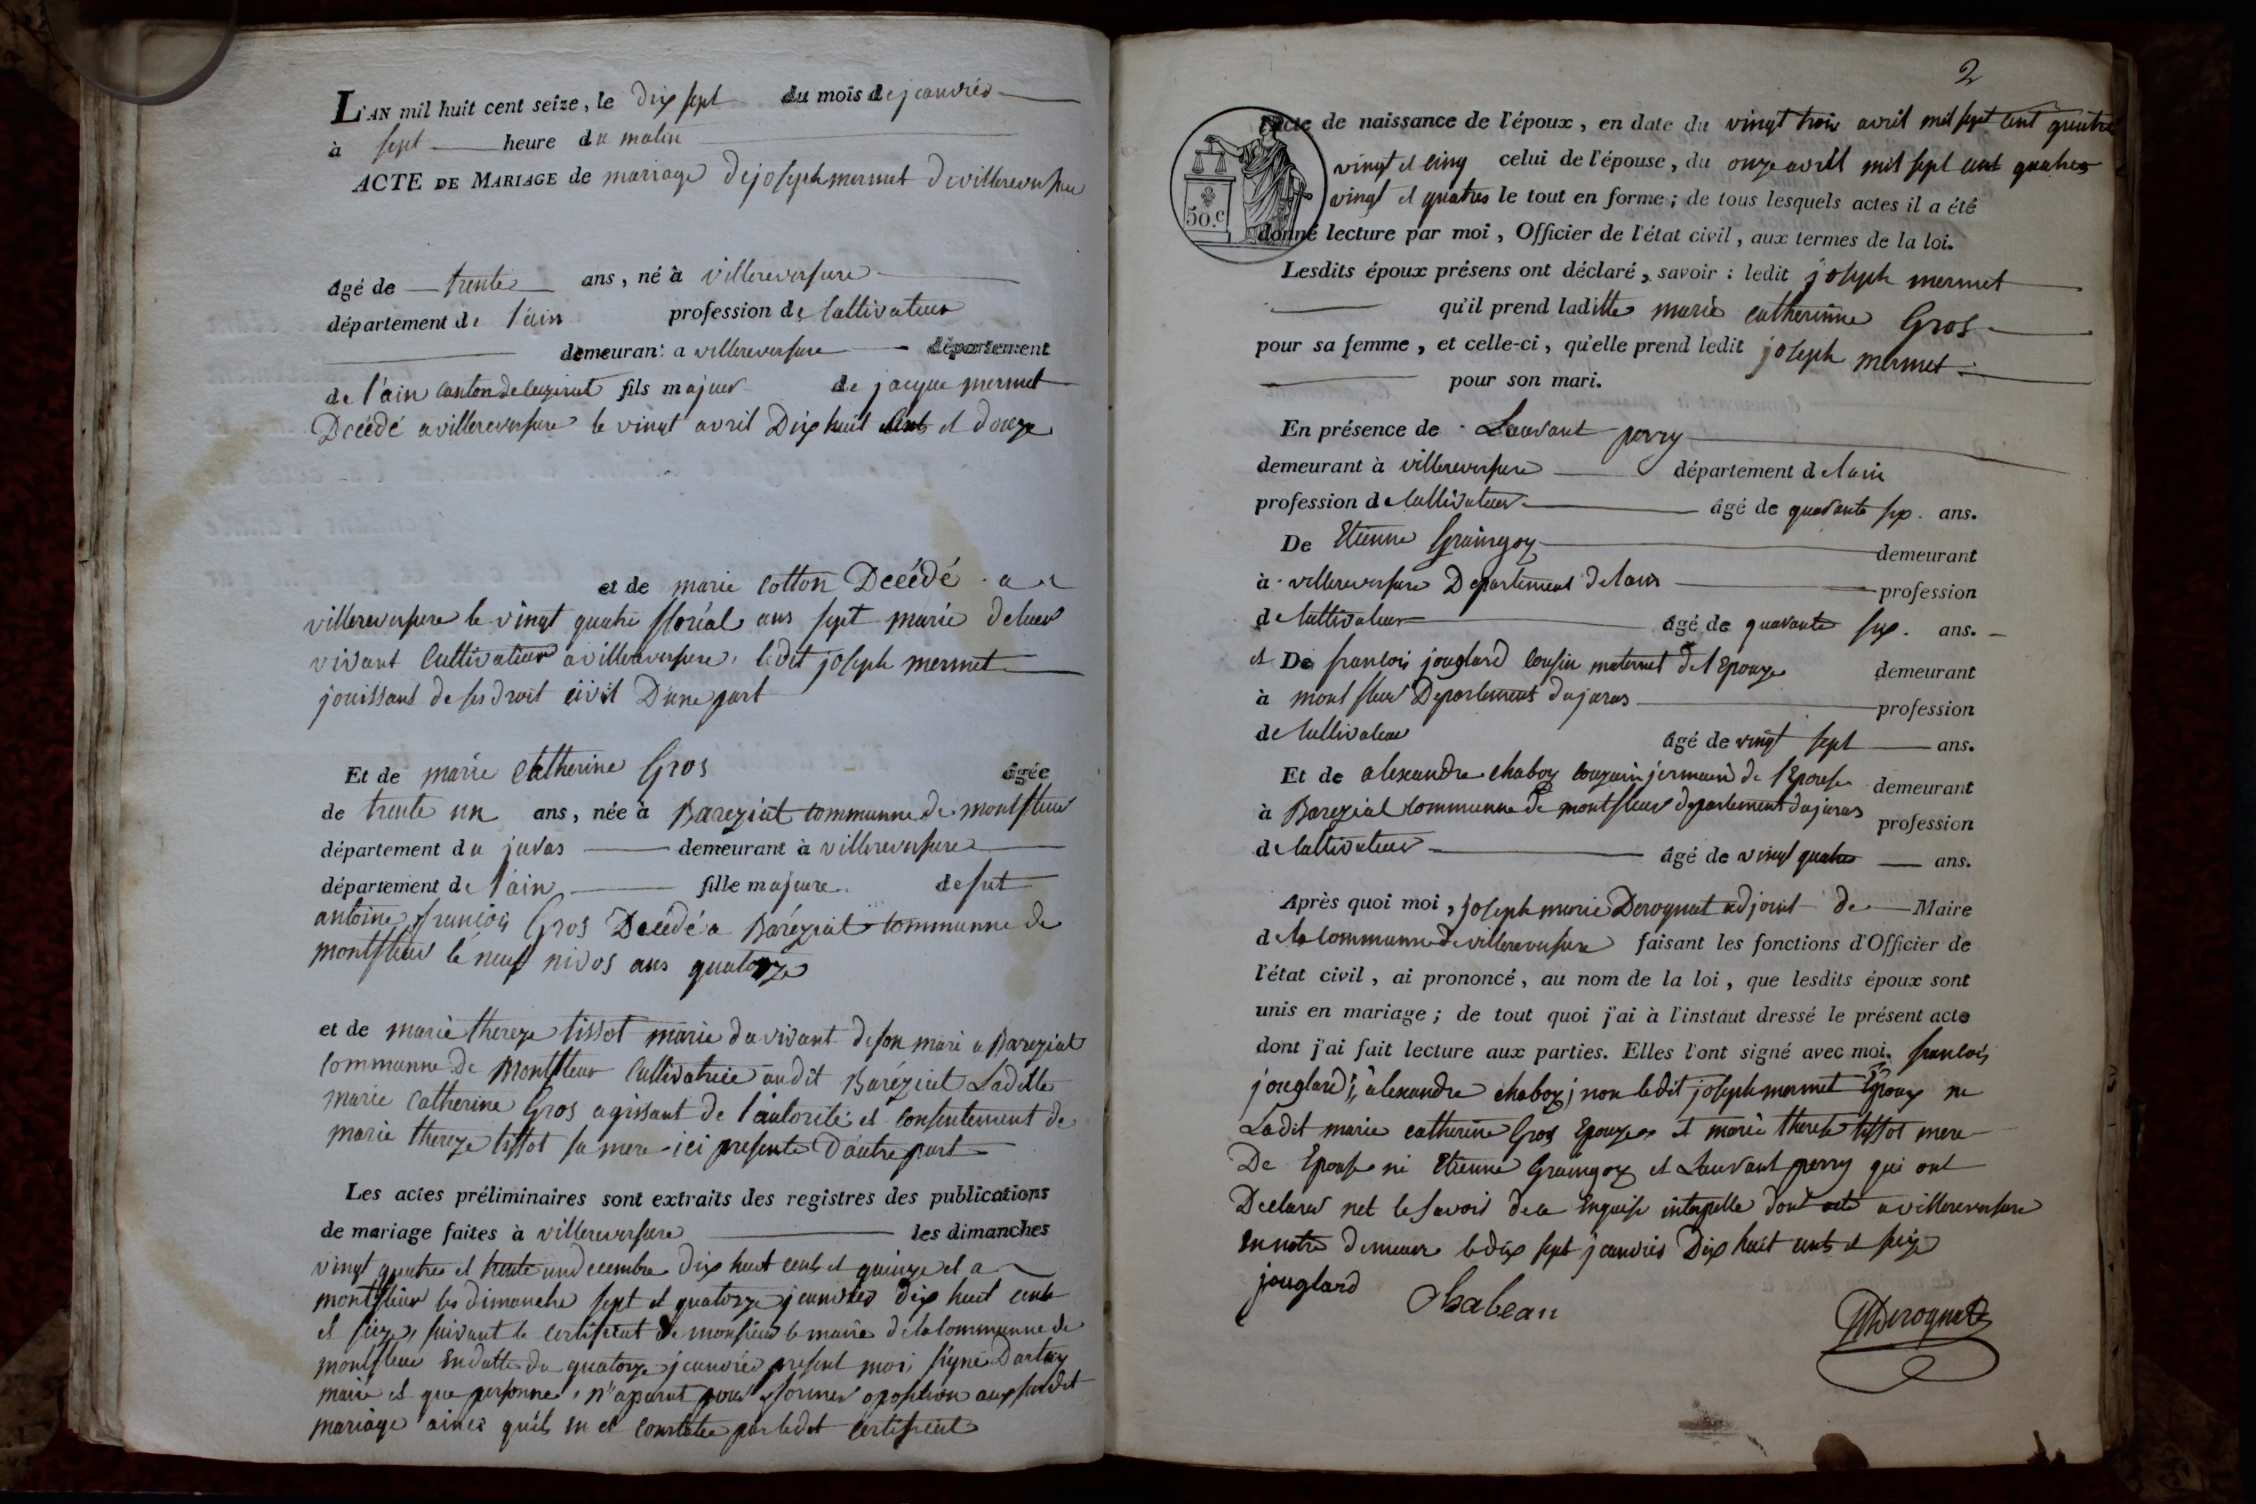 L'AN mil huit cent seize, le dix sept du mois de janvier
à sept heure du matin
ACTE DE MARIAGE de mariage de joseph mermet de villereversure
âgé de trente ans, né à villereversure
département de l'ain profession de Cultivateur
demeurant a villereversure département
de l'ain canton de ceyzeriat fils majeur de jacque mermet
Décédé a villereversure le vingt avril Dix huit Cents et douze
et de marie Cotton Décédé a
villereversure le vingt quatre floréal ans sept marié de leur
vivant Cultivateur a villereversure, ledit joseph mermet
jouissant de ses droit civil D'une part
Et de marie Catherine Gros âgée
de trente un ans, née à Bareziat Communne de montfleur
département du juras demeurant à villereversure
département de l'ain fille majeure de fut
antoine françois Gros Décédé a Baréziat Communne de
montfleur le neuf nivos ans quatorze
et de marie thereze tissot marié du vivant de son mari a Bareziat
Communne de Montfleur Cultivatrice audit Baréziat Laditte
marie Catherine Gros agissant de l'autorité et Consentement de
marie thereze tissot sa mere ici presente D'autre part
Les actes préliminaires sont extraits des registres des publications
de mariage faites à villereversure les dimanches
vingt quatre et trente un decembre dix huit cents et quinze et a
montfleur les dimanche sept et quatorze janvier dix huit cents
et seize, suivant le certificat de monsieur le maire de la Communne de
montfleur en datte du quatorze janvier present moi signé Dartay
maire et que personne n'aparut pour former oposition au susdit
mariage ainci quils en et constatée par ledit certificat
2
l'acte de naissance de l'époux, en date du vingt trois avril mil sept cent quatre
vingt et cinq celui de l'épouse, du onze avril mil sept cent quatre
vingt et quatres le tout en forme; de tous lesquels actes il a été
50.c
donné lecture par moi, Officier de l'état civil, aux termes de la loi.
Lesdits époux présens ont déclaré, savoir: ledit joseph mermet
qu'il prend laditte marie catherinne Gros
pour sa femme, et celle-ci, qu'elle prend ledit joseph mermet
pour son mari.
En présence de Lauvant perry
demeurant à villereversure département de lain
profession de Cultivateur âgé de quarante six ans.
De Etienne Graingoy demeurant
à villereversure Departement de lain profession
de Cultivateur âgé de quarante six ans.
et De francois jouglard Cousin maternel de l'Epouze demeurant
à montfleur Departement du juras profession
de Cultivateur âgé de vingt sept ans.
Et de alexandre chaboz couzain jermain de l'Epouse demeurant
à Bareziat Communne de montfleur departement du juras profession
de Cultivateur âgé de vingt quatre ans.
Après quoi moi, joseph marie Derognat adjoint de Maire
de la Communne de villereversure faisant les fonctions d'Officier de
l'état civil, ai prononcé, au nom de la loi, que lesdits époux sont
unis en mariage; de tout quoi j'ai à l'instant dressé le présent acte
dont j'ai fait lecture aux parties. Elles l'ont signé avec moi. francois
jouglard, alexandre chaboz, non ledit joseph mermet Epoux ni
Ladit marie catherine Gros Epouze et marie therese tissot mere
De Epouse ni Etienne Graingoy et Lauvant perry qui ont
Declarer net le savoir de ce Enquise interpelle dont acte a villereversure
en notre demeure le dix sept janvier Dix huit cents et seize
jouglard Chabeau Derognat